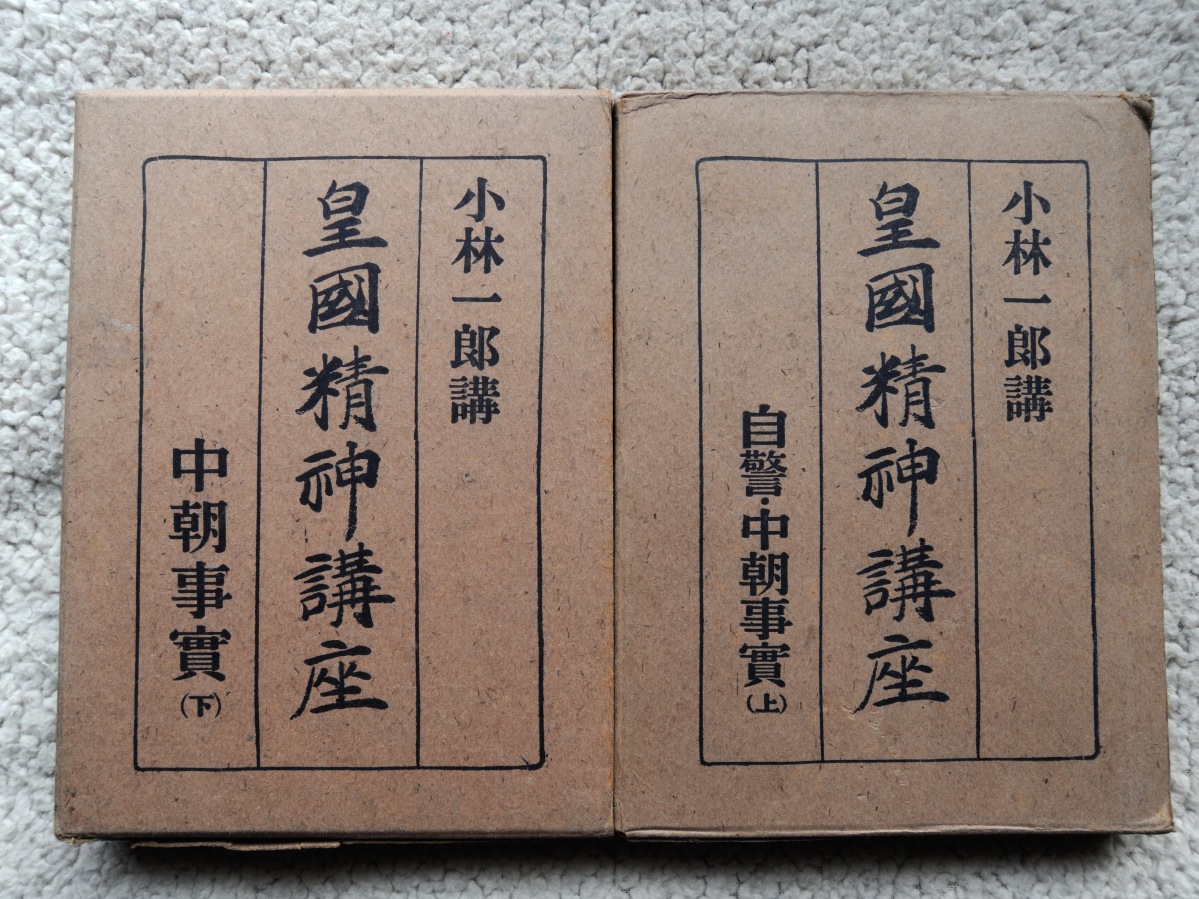 小林一郎講
皇國精神講座
自警・中朝事實(上)
小林一郎講
皇國精神講座
中朝事實(下)